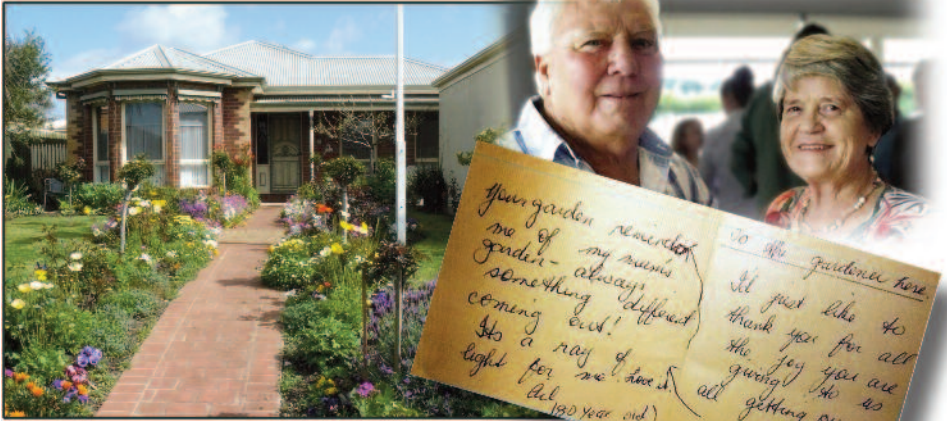 Your garden reminds
me of my mum's
garden - always
something different
coming out!
Its a ray of
light for me. Love it.
year old)
To the gardener here
I'd just like to
thank you for all
the joy you are
giving to us
all getting